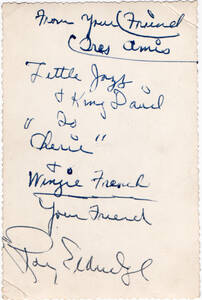 From Your Friend
Tres Amis
Little Jazz
& King David
"To
Cherie"
&
Wingie French
Your Friend
Roy Eldridge